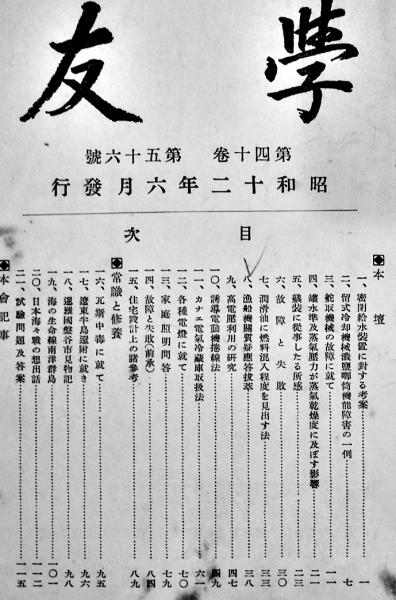 學友
第四十卷 第五十六號
昭和十二年六月發行
目次
◆本壇
一、密閉給水裝置に對する考案……一
二、留式冷却機械濃鹽喞筒機能障害の一例……七
三、舵取機械の故障に就て……一一
四、罐水準及蒸氣壓力が蒸氣乾燥度に及ぼす影響……二一
五、艤裝に從事したる所感……二三
六、故障と失敗……三〇
七、潤滑油に燃料混入程度を見出す法……三三
八、漁船機關質疑應答拔萃……三八
九、高電壓利用の研究……四七
一〇、誘導電動機捲線法……四九
一一、カナエ電氣冷藏庫取扱法……六一
一二、各種電燈に就て……七〇
一三、家庭照明問答……七九
一四、故障と失敗(前承)……八四
一五、住宅設計上の諸參考……八九
◆常識と修養
一六、瓦斯中毒に就て……九五
一七、遼東半島還附に就き……九六
一八、暹羅國盤谷市見物記……九八
一九、海の生命線南洋群島……一〇一
二〇、日本海々戰の想出話……一一二
二一、試驗問題及答案……一一五
◆本會記事